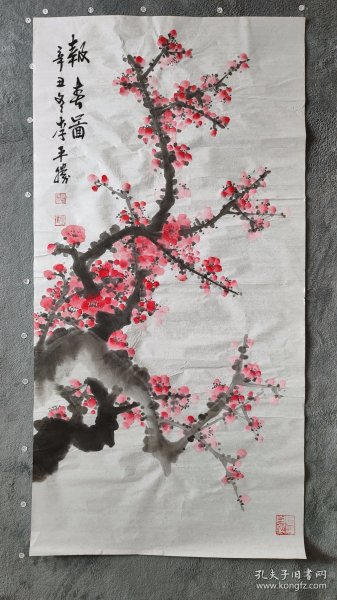 報春圖
辛丑冬李平勝
孔夫子旧书网
www.kongfz.com